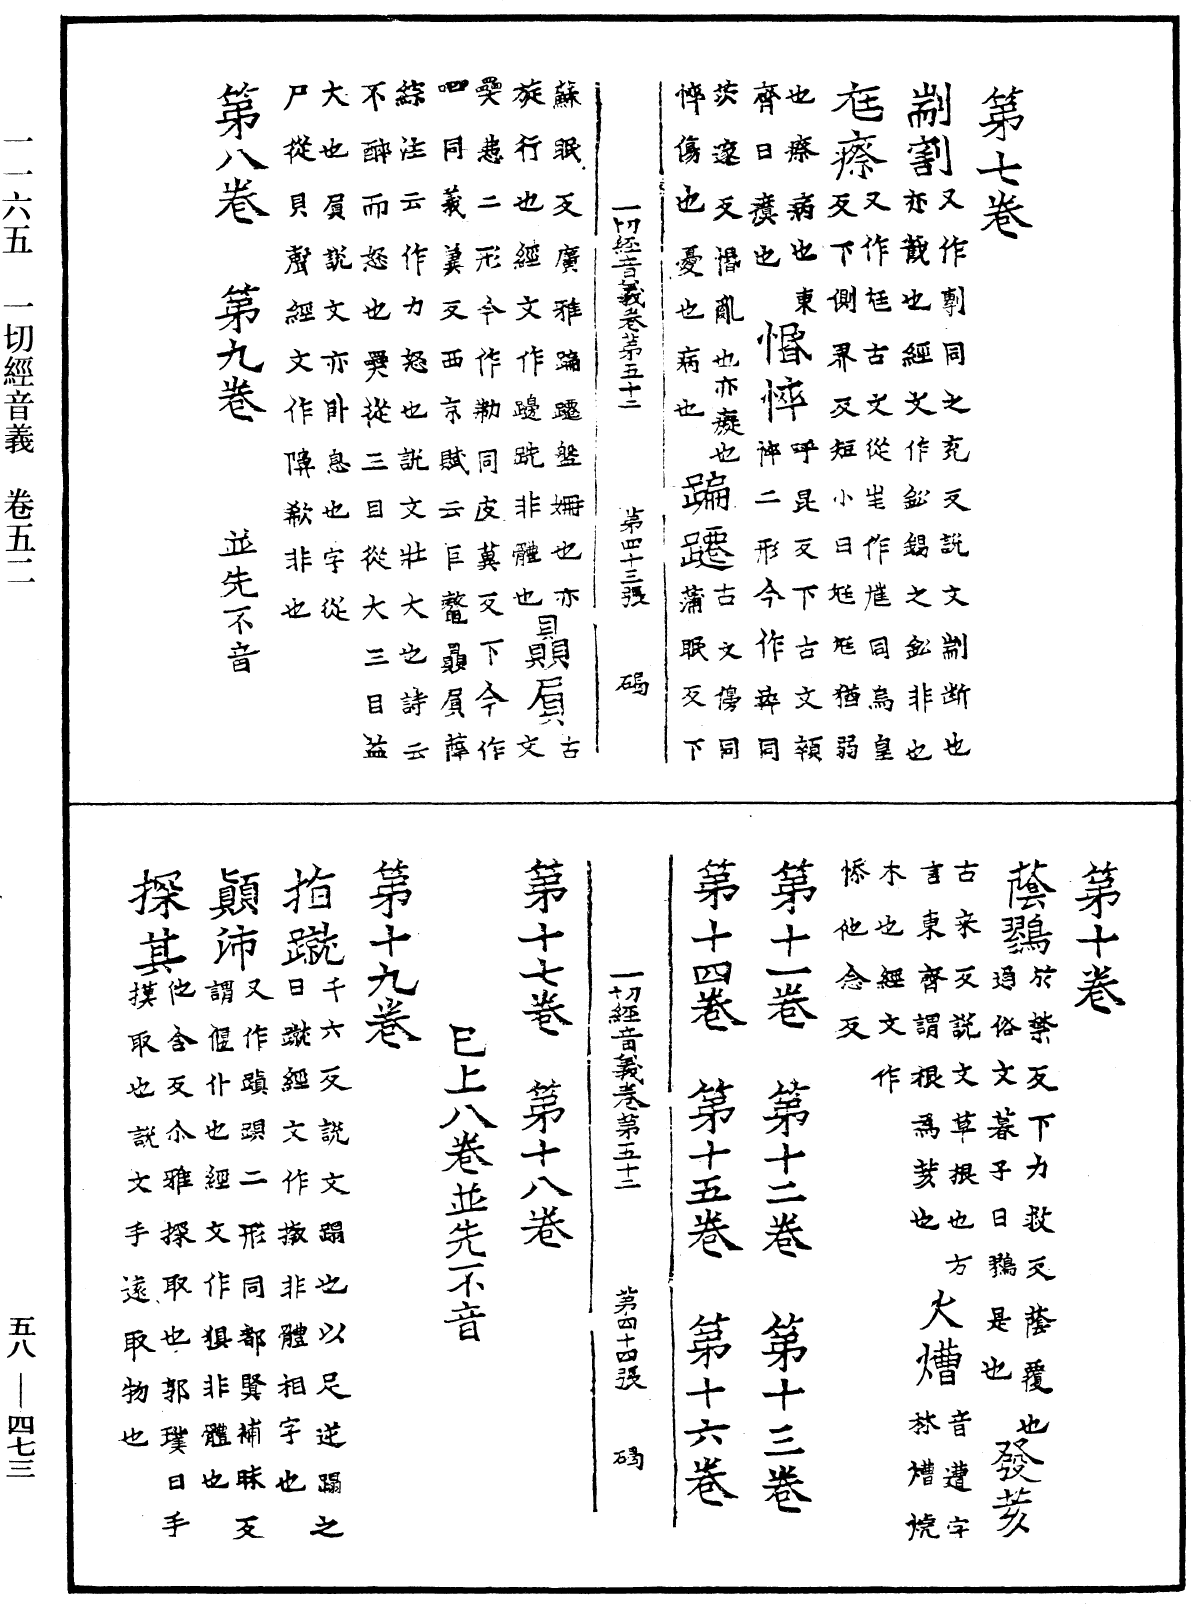 第七卷
剬割又作剸同之兗反說文剬断也
亦截也經文作鈆錫之鈆非也
尫瘵又作尪古文從𡉚作𡯓同烏皇
反下側界反短小曰尪尪猶弱
也瘵病也東
齊曰瘼也惛悴呼昆反下古文顇
悴二形今作瘁同
茨遂反惛亂也亦癡也
悴傷也憂也病也蹁躚古文傍同
蒲眠反下
一切經音義卷第五十二 第四十三張 碣
蘇眠反廣雅蹁躚盤姍也亦
旋行也經文作邊跣非體也贔屓古文
奰患二形今作勫同皮冀反下今作
呬同義冀反西京賦云巨鼇贔屓薛
綜注云作力怒也說文壯大也詩云
不醉而怒也奰從三目從大三目益
大也屓說文亦臥息也字從
尸從貝聲經文作㒽欷非也
第八卷 第九卷 並先不音
第十卷
蔭鷚於禁反下力救反蔭覆也
通俗文暮子曰鷚是也發荄
古來反說文草根也方
言東齊謂根爲荄也火㷮音遭字
林㷮燒
木也經文作
㥏他念反
第十一卷 第十二卷 第十三卷
第十四卷 第十五卷 第十六卷
一切經音義卷第五十二 第四十四張 碣
第十七卷 第十八卷
已上八卷並先不音
第十九卷
指蹴千六反說文蹋也以足逆蹋之
曰蹴經文作撴非體相字也
顛沛又作蹎䠙二形同都賢補昧反
謂偃仆也經文作狽非體也
探其他含反尒雅探取也郭璞曰手
摸取也說文手遠取物也
一一六五 一切經音義 卷五二
五八—四七三